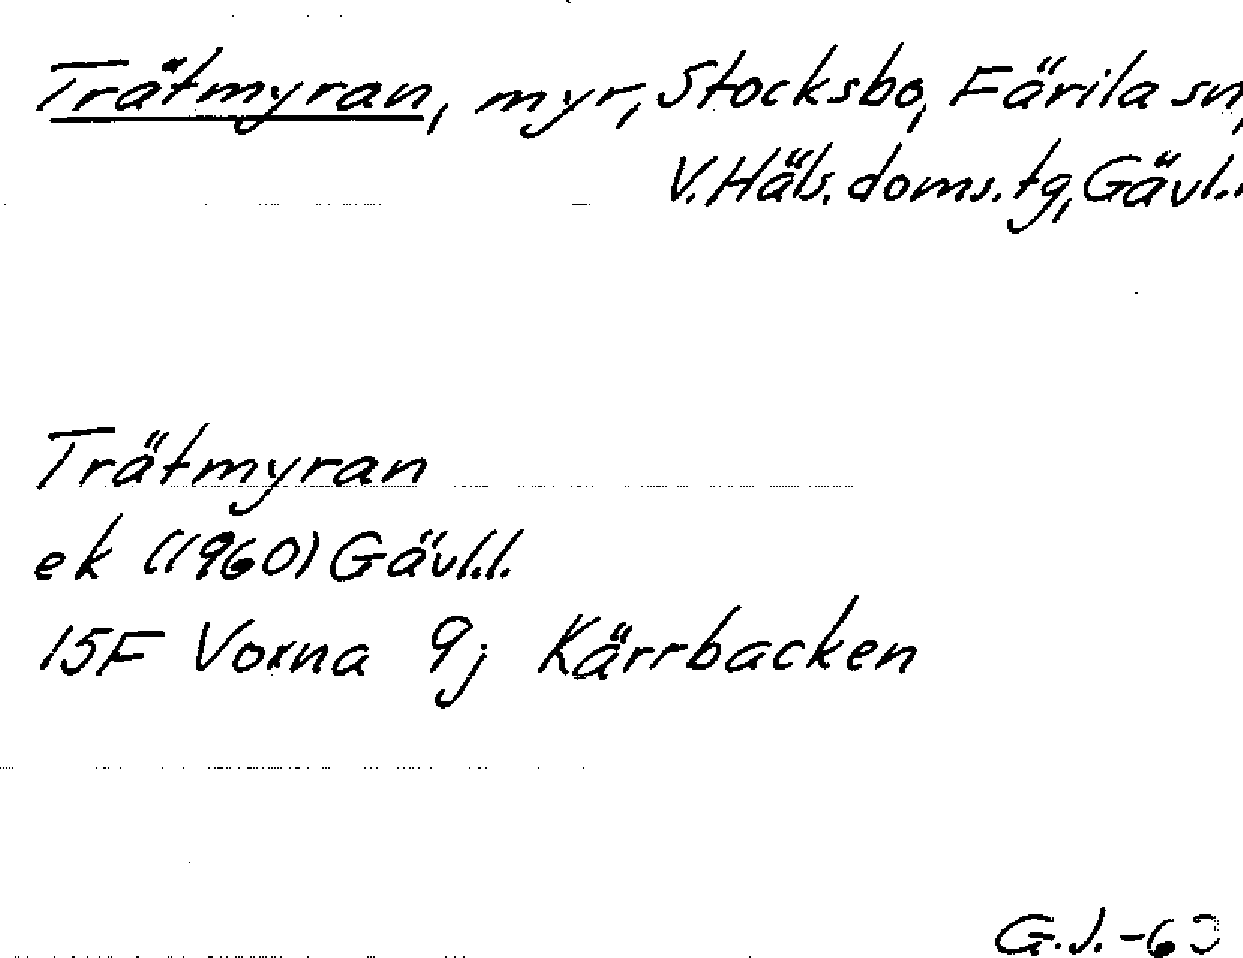 Trätmyran, myr, Stocksbo, Färila sn,
V. Häls. doms. tg, Gävl.
Trätmyran
ek (1960) Gävl.l.
15F Voxna 9j Kärrbacken
G.J.